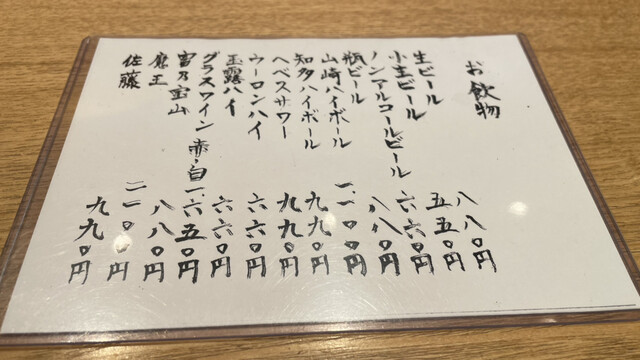 お飲物
生ビール 八八〇円
小生ビール 五五〇円
ノンアルコールビール 六六〇円
瓶ビール 八八〇円
山崎ハイボール 一.一〇〇円
知多ハイボール 九九〇円
ヘベスサワー 九九〇円
ウーロンハイ 六六〇円
玉露ハイ 六六〇円
グラスワイン 赤・白 一.六五〇円
富乃宝山 八八〇円
魔王
佐藤 九九〇円